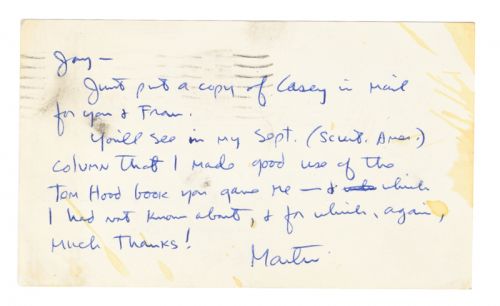 Jay—
Just put a copy of Casey in mail
for you & Fran.
You'll see in my Sept. (Scient. Amer.)
column that I made good use of the
Tom Hood book you gave me — & which
I had not know about, & for which, again,
much thanks!
Martin